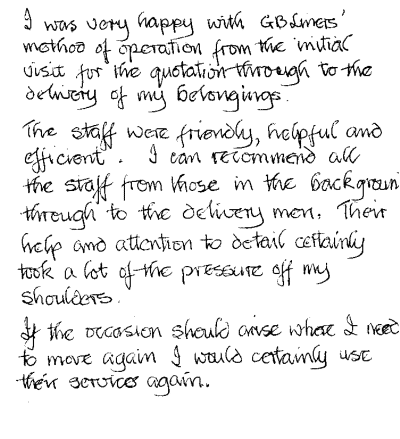 I was very happy with GBLiners'
method of operation from the initial
visit for the quotation through to the
delivery of my belongings.
The staff were friendly, helpful and
efficient. I can recommend all
the staff from those in the backgroun
through to the delivery men. Their
help and attention to detail certainly
took a lot of the pressure off my
shoulders.
If the occasion should arise where I need
to move again I would certainly use
their services again.